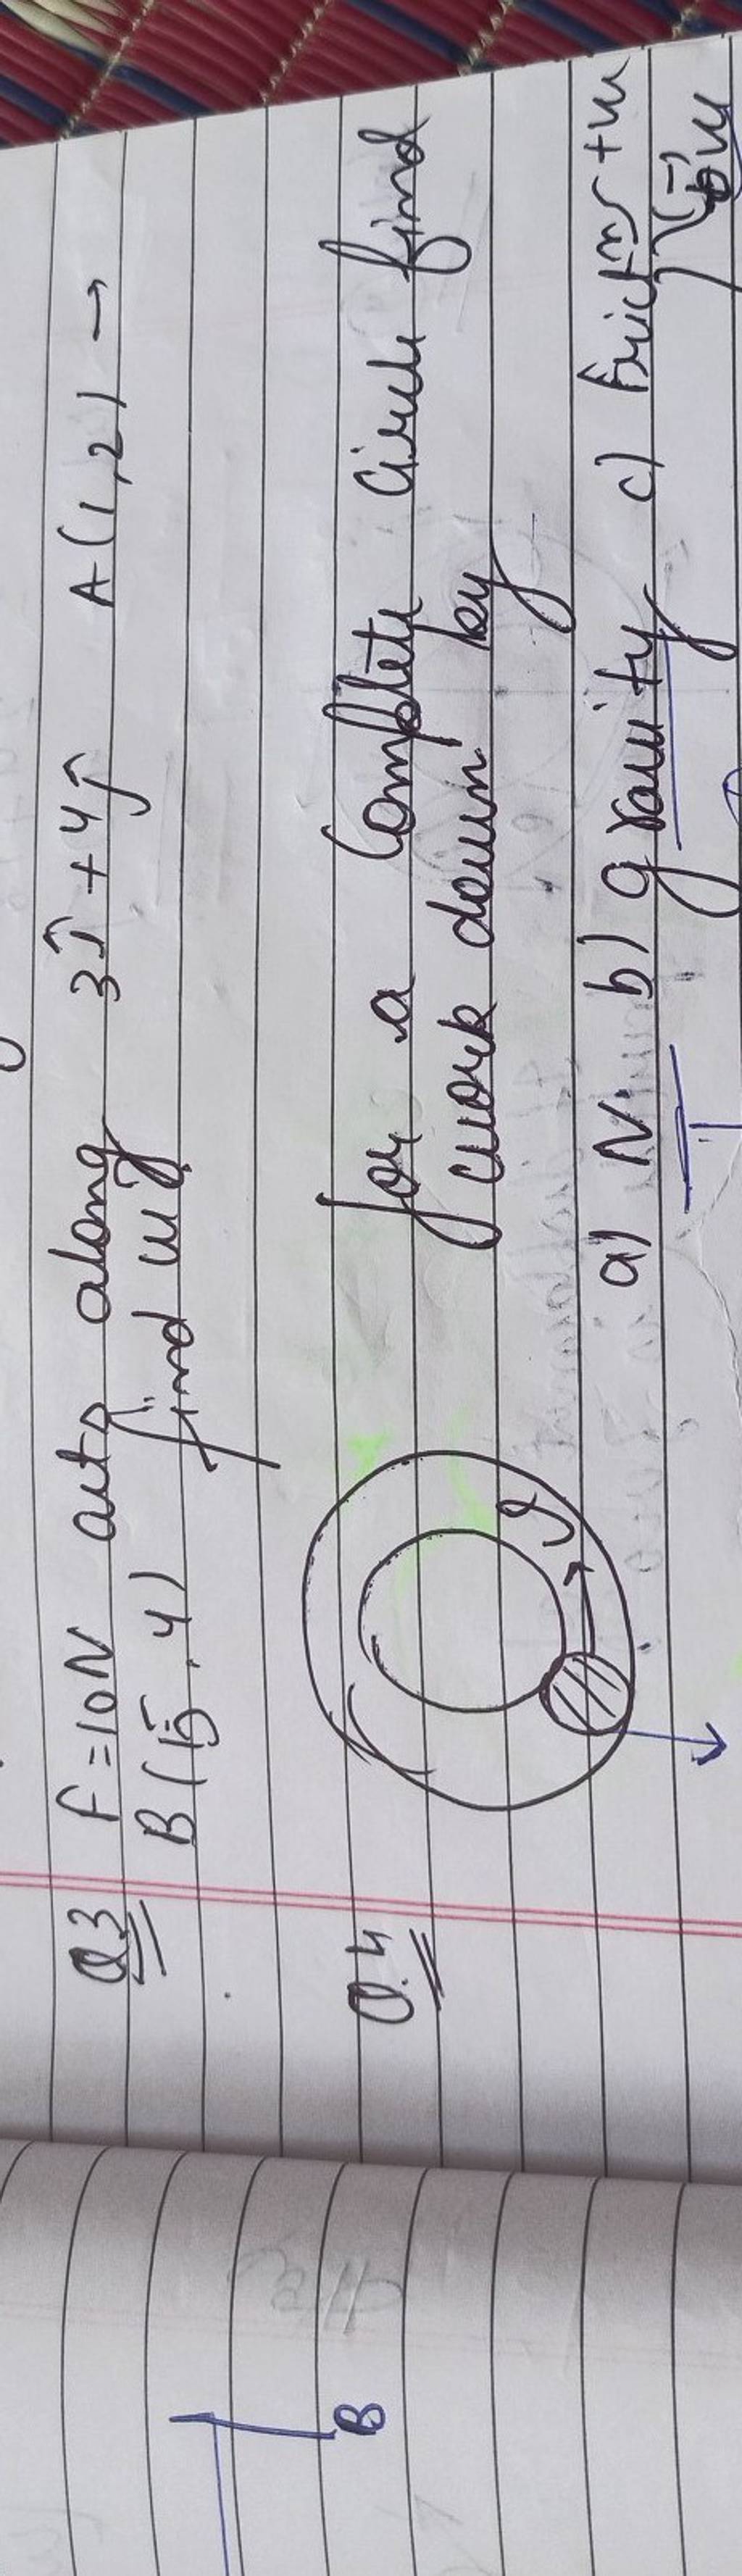 Q3 F=10N acts along 3î+4ĵ A(1,2) →
B(15,4) find w.
Q.4 for a Complete Circle find
work down by
a) N b) gravity c) frict
B